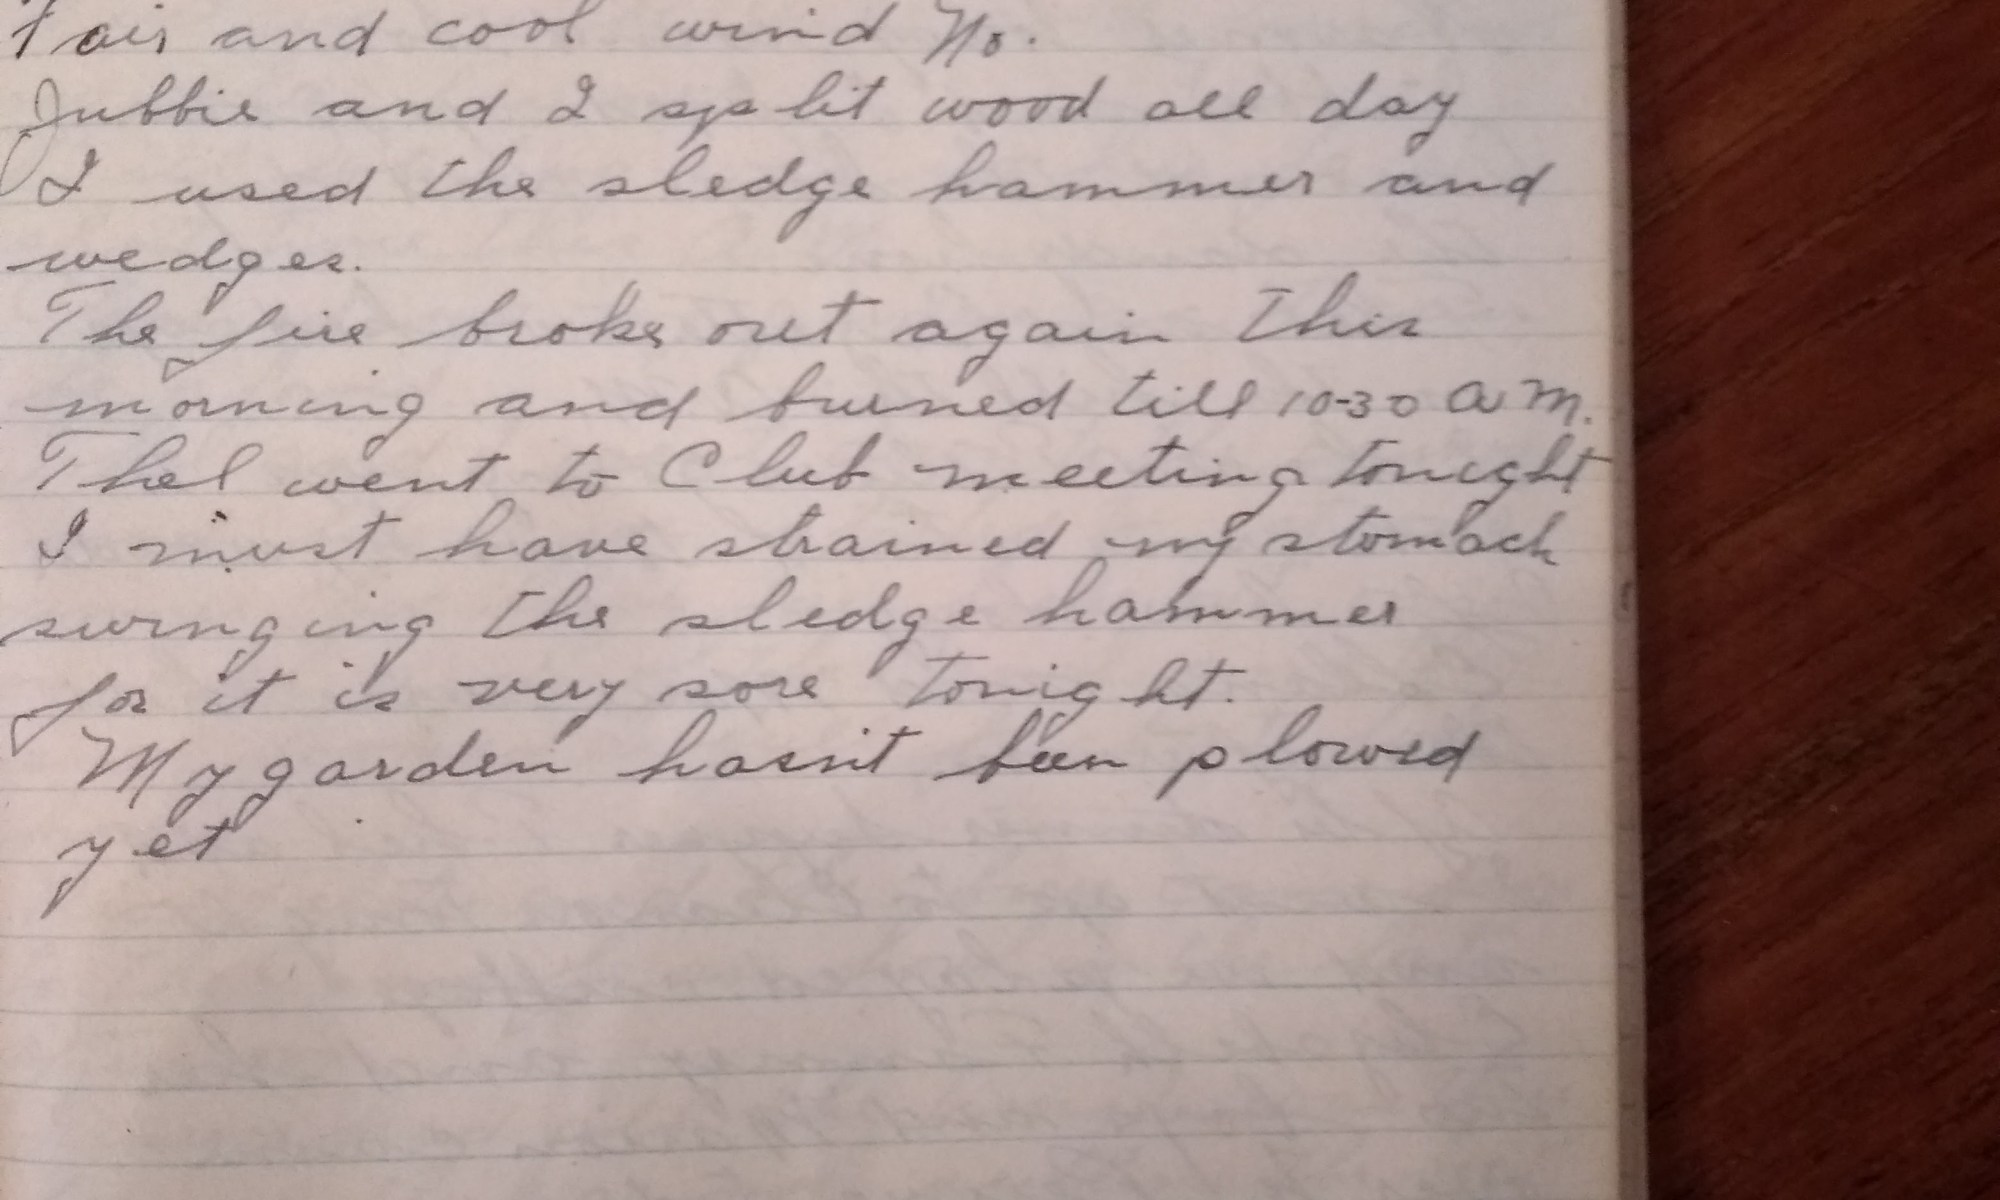 Fair and cool wind No.
Jubbie and I split wood all day
I used the sledge hammer and
wedges.
The fire broke out again this
morning and burned till 10-30 a m.
Thel went to Club meeting tonight
I must have strained my stomach
swinging the sledge hammer
for it is very sore tonight.
My garden hasn't been plowed
yet